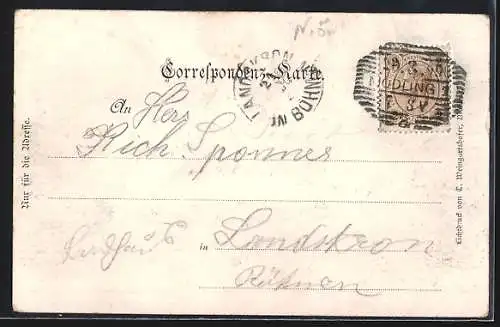 N.Ö.
Correspondenz-Karte.
LANDSKRON IN BÖHMEN
MÖDLING
An Herr
Rich. Sponner
in Landskron
Böhmen
Nur für die Adresse.
Lichtdruck von C. Weingartshofer,